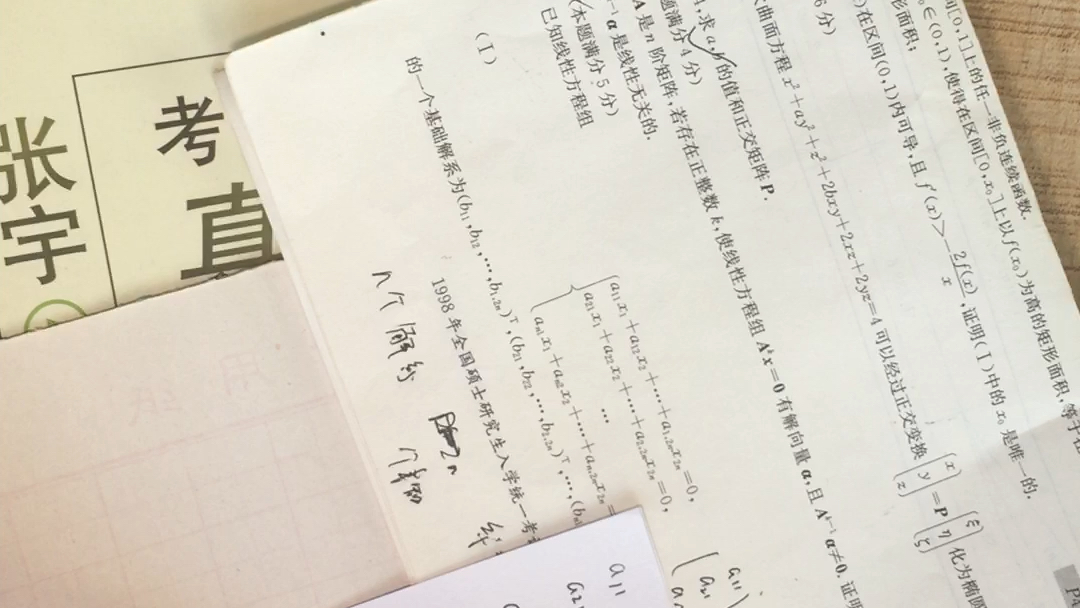 张宇
考
直
间[0,1]上的任一非负连续函数.
x₀∈(0,1),使得在区间[0,x₀]上以f(x₀)为高的矩形面积,等于在
形面积;
)在区间(0,1)内可导,且 f′(x)>-2f(x)/x,证明(Ⅰ)中的 x₀ 是唯一的.
6分)
次曲面方程 x²+ay²+z²+2bxy+2xz+2yz=4 可以经过正交变换 (x y z) = P (ξ η ζ) 化为椭圆
,求 a,b 的值和正交矩阵 P.
题满分4分)
A 是 n 阶矩阵,若存在正整数 k,使线性方程组 Aᵏx=0 有解向量 α,且 Aᵏ⁻¹α≠0. 证明
α 是线性无关的.
(本题满分5分)
已知线性方程组
(Ⅰ)
a₁₁x₁+a₁₂x₂+⋯+a₁,₂ₙx₂ₙ=0,
a₂₁x₁+a₂₂x₂+⋯+a₂,₂ₙx₂ₙ=0,
⋯
aₙ₁x₁+aₙ₂x₂+⋯+aₙ,₂ₙx₂ₙ=
的一个基础解系为(b₁₁,b₁₂,⋯,b₁,₂ₙ)ᵀ,(b₂₁,b₂₂,⋯,b₂,₂ₙ)ᵀ,⋯,(bₙ
1998年全国硕士研究生入学统一考
n个
2n
a₁₁
a₂₁
a₁₁